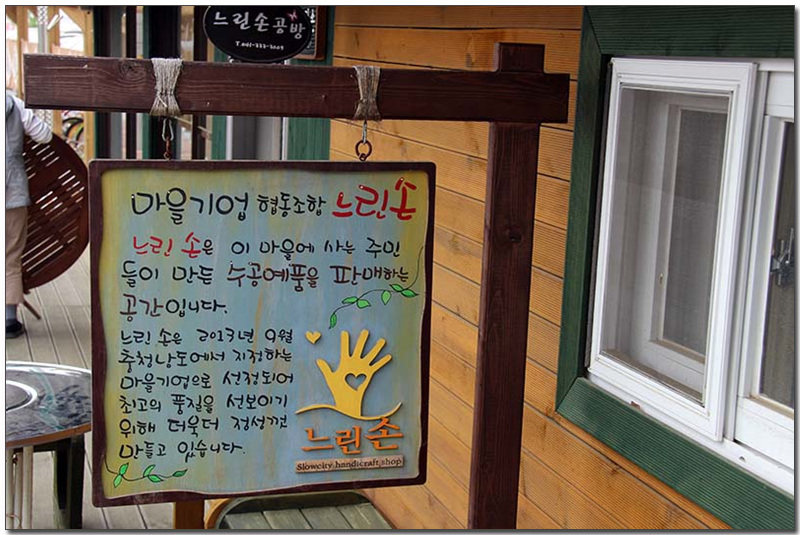 느린손공방
마을기업 협동조합 느린손
느린 손은 이 마을에 사는 주민
들이 만든 수공예품을 판매하는
공간입니다.
느린 손은 2013년 9월
충청남도에서 지정하는
마을기업으로 선정되어
최고의 품질을 선보이기
위해 더욱더 정성껏
만들고 있습니다.
느린손
Slowcity handicraft shop